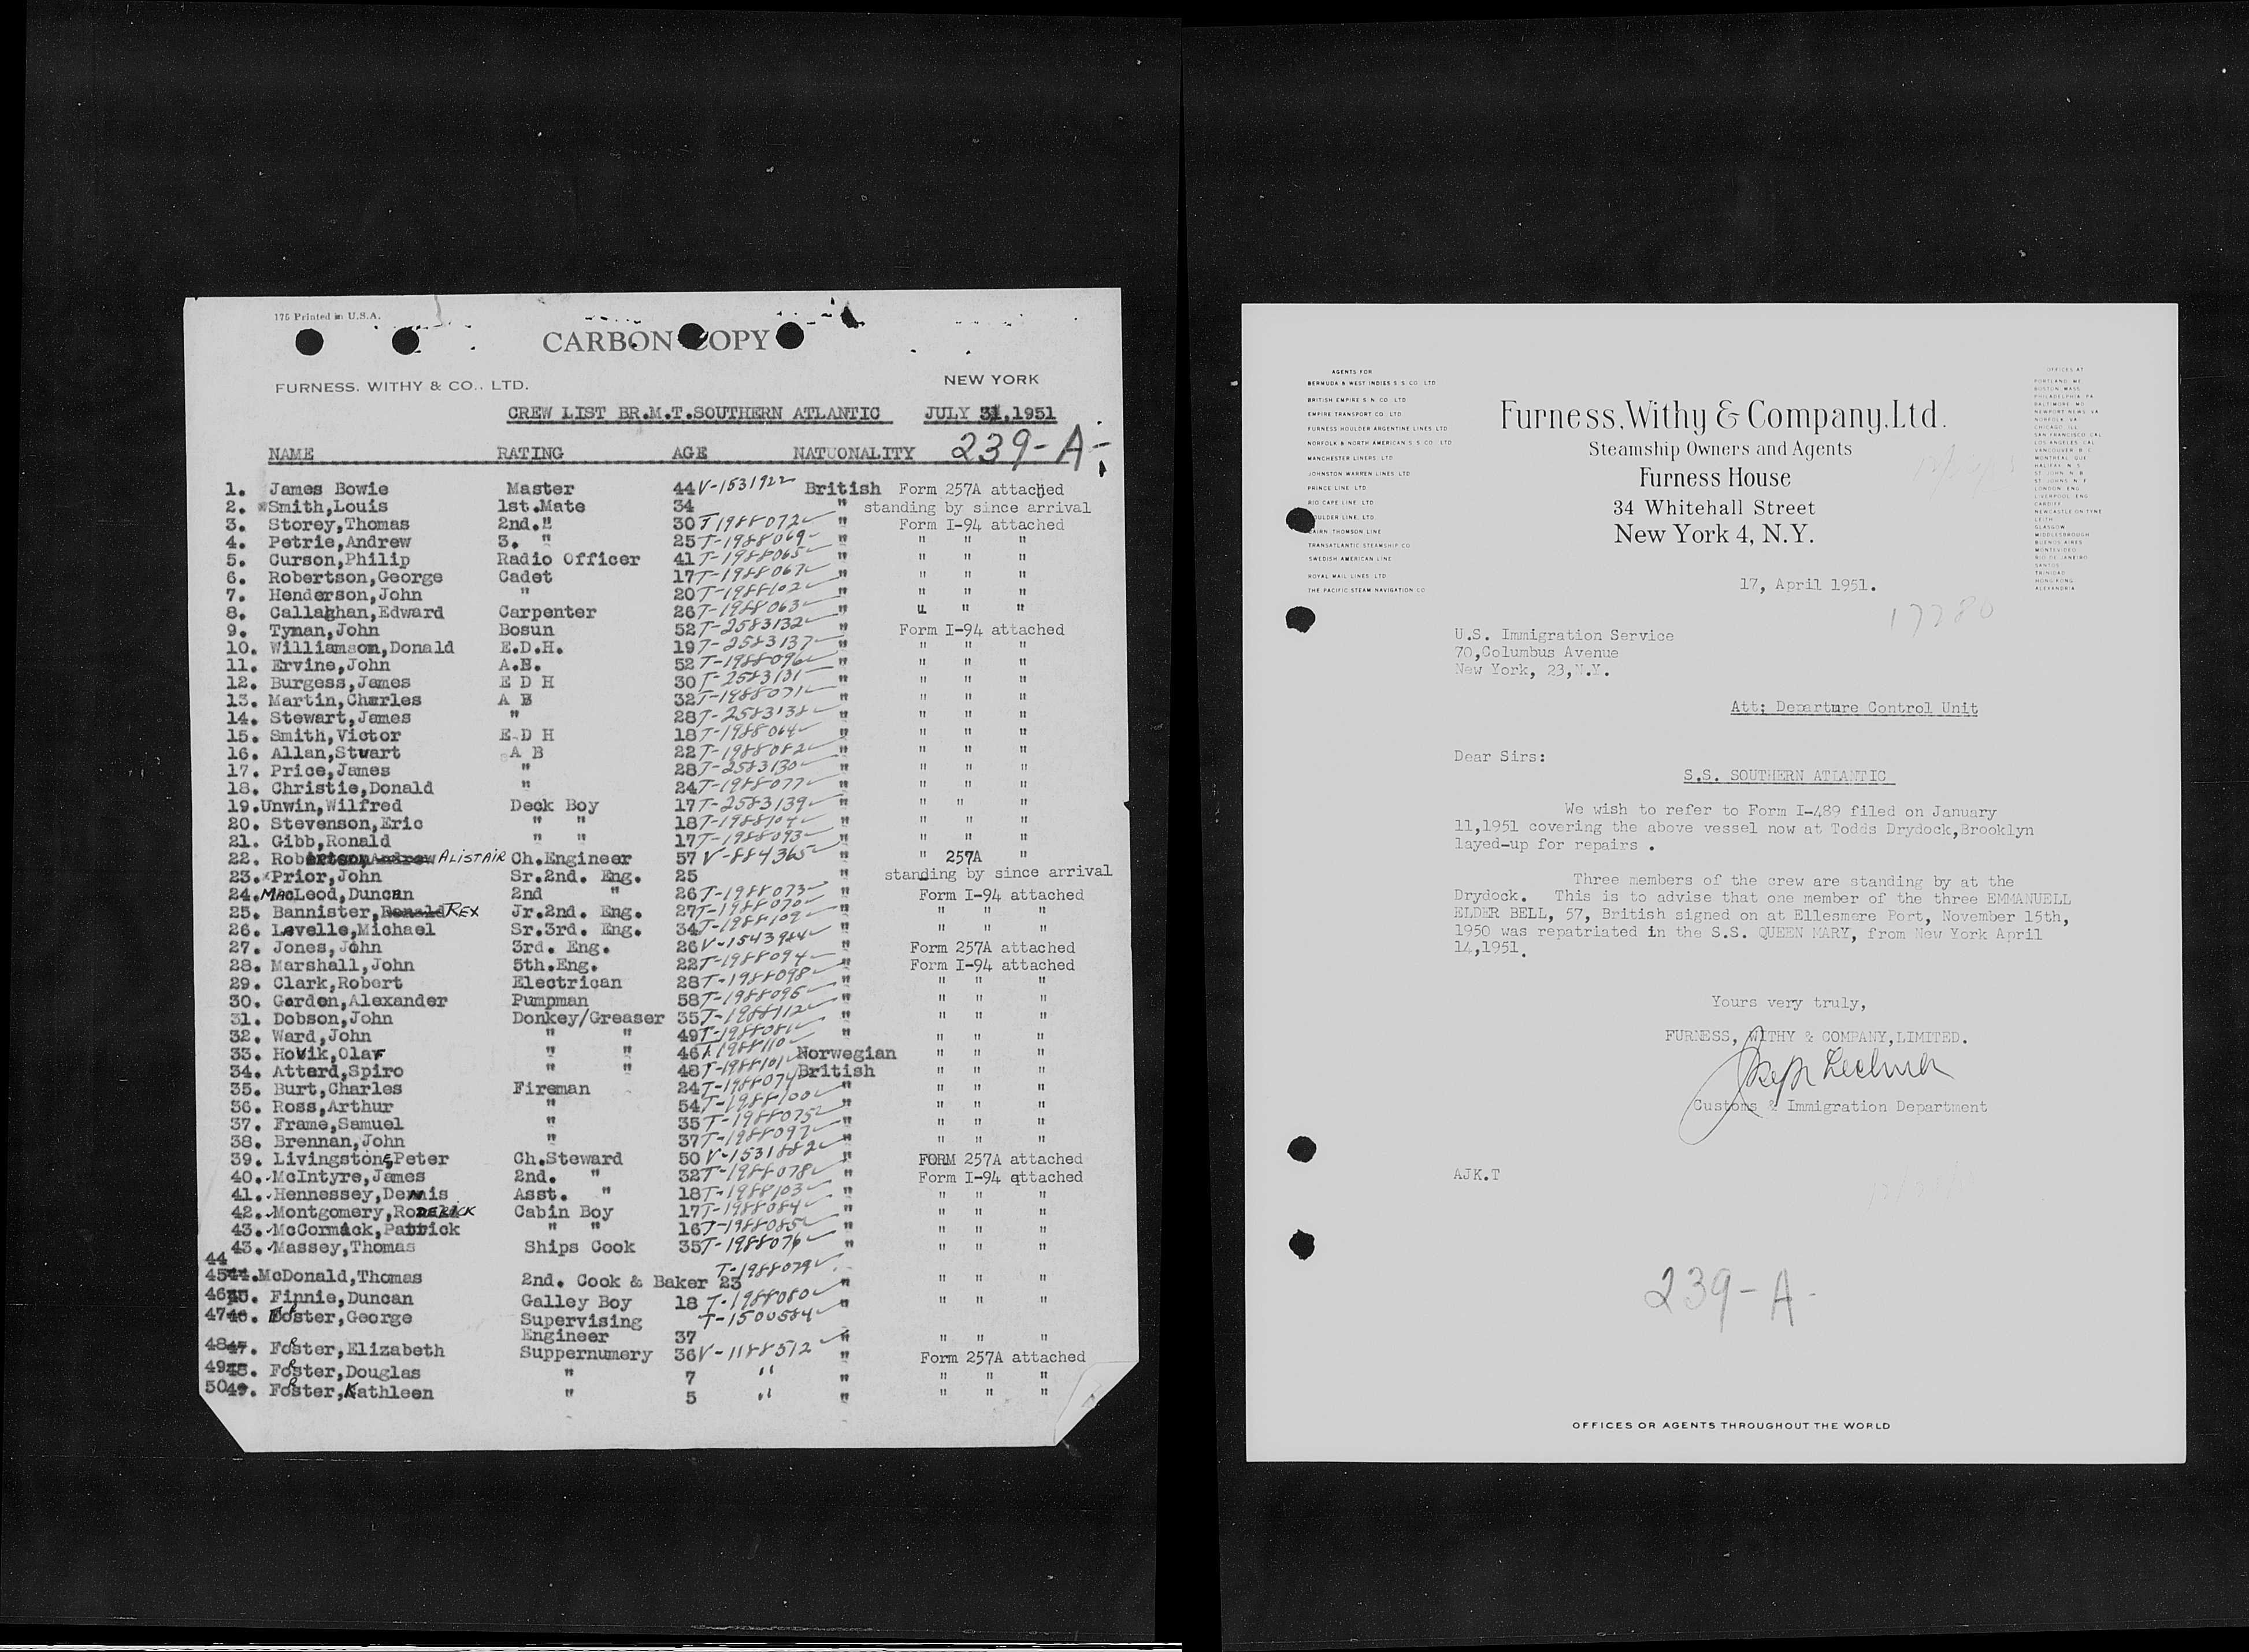 175 Printed in U.S.A.
CARBON COPY
FURNESS, WITHY & CO., LTD. NEW YORK
CREW LIST BR.M.T.SOUTHERN ATLANTIC JULY 31,1951
NAME RATING AGE NATUONALITY 239-A-
1. James Bowie Master 44 V-1531922 British Form 257A attached
2. *Smith,Louis 1st.Mate 34 " standing by since arrival
3. Storey,Thomas 2nd." 30 T1988072 " Form I-94 attached
4. Petrie,Andrew 3. " 25 T-1988069 " " " "
5. Curson,Philip Radio Officer 41 T-1988065 " " " "
6. Robertson,George Cadet 17 T-1988067 " " " "
7. Henderson,John " 20 T-1988102 " " " "
8. Callaghan,Edward Carpenter 26 T-1988063 " " " "
9. Tynan,John Bosun 52 T-2583132 " Form I-94 attached
10. Williamson,Donald E.D.H. 19 T-2583137 " " " "
11. Ervine,John A.B. 52 T-1988096 " " " "
12. Burgess,James E D H 30 T-2583131 " " " "
13. Martin,Charles A B 32 T-1988071 " " " "
14. Stewart,James " 28 T-2583138 " " " "
15. Smith,Victor E D H 18 T-1988064 " " " "
16. Allan,Stuart A B 22 T-1988082 " " " "
17. Price,James " 28 T-2583130 " " " "
18. Christie,Donald " 24 T-1988077 " " " "
19.Unwin,Wilfred Deck Boy 17 T-2583139 " " " "
20. Stevenson,Eric " " 18 T-1988104 " " " "
21. Gibb,Ronald " " 17 T-1988093 " " " "
22. Robertson,Andrew ALISTAIR Ch.Engineer 57 V-884365 " " 257A "
23.*Prior,John Sr.2nd. Eng. 25 " standing by since arrival
24.MacLeod,Duncan 2nd " 26 T-1988073 " Form I-94 attached
25. Bannister,Ronald REX Jr.2nd. Eng. 27 T-1988070 " " " "
26. Lavelle,Michael Sr.3rd. Eng. 34 T-1988109 " " " "
27. Jones,John 3rd. Eng. 26 V-1543984 " Form 257A attached
28. Marshall,John 5th.Eng. 22 T-1988094 " Form I-94 attached
29. Clark,Robert Electrican 28 T-1988098 " " " "
30. Gordon,Alexander Pumpman 58 T-1988095 " " " "
31. Dobson,John Donkey/Greaser 35 T-1988112 " " " "
32. Ward,John " " 49 T-1988081 " " " "
33. Hovik,Olav " " 46 T1988110 Norwegian " " "
34. Attard,Spiro " " 48 T-1988101 British " " "
35. Burt,Charles Fireman 24 T-1988074 " " " "
36. Ross,Arthur " 54 T-1988100 " " " "
37. Frame,Samuel " 35 T-1988075 " " " "
38. Brennan,John " 37 T-1988097 " " " "
39. Livingstone,Peter Ch.Steward 50 V-1531882 " FORM 257A attached
40. McIntyre,James 2nd. " 32 T-1988078 " Form I-94 attached
41. Hennessey,Dennis Asst. " 18 T-1988103 " " " "
42. Montgomery,RoDERICK Cabin Boy 17 T-1988084 " " " "
43. McCormack,Patrick " " 16 T-1988085 " " " "
44 43. Massey,Thomas Ships Cook 35 T-1988076 " " " "
45 44.McDonald,Thomas 2nd. Cook & Baker 23 T-1988079 " " " "
46 45. Finnie,Duncan Galley Boy 18 T-1988080 " " " "
47 46. Foster,George Supervising T-1500584 "
Engineer 37 " " "
48 47. Foster,Elizabeth Suppernumery 36 V-1188572 " Form 257A attached
49 48. Foster,Douglas " 7 " " " " "
50 49. Foster,Kathleen " 5 " " " " "
AGENTS FOR
BERMUDA & WEST INDIES S. S. CO. LTD
BRITISH EMPIRE S. N. CO. LTD
EMPIRE TRANSPORT CO. LTD
FURNESS HOULDER ARGENTINE LINES LTD
NORFOLK & NORTH AMERICAN S. S. CO. LTD
MANCHESTER LINERS LTD
JOHNSTON WARREN LINES LTD
PRINCE LINE LTD
RIO CAPE LINE LTD
HOULDER LINE LTD
CAIRN THOMSON LINE
TRANSATLANTIC STEAMSHIP CO
SWEDISH AMERICAN LINE
ROYAL MAIL LINES LTD
THE PACIFIC STEAM NAVIGATION CO
Furness, Withy & Company, Ltd.
Steamship Owners and Agents
Furness House
34 Whitehall Street
New York 4, N.Y.
OFFICES AT
PORTLAND ME
BOSTON MASS
PHILADELPHIA PA
BALTIMORE MD
NEWPORT NEWS VA
NORFOLK VA
CHICAGO ILL
SAN FRANCISCO CAL
LOS ANGELES CAL
VANCOUVER B. C.
MONTREAL QUE
HALIFAX N. S.
ST. JOHN N. B.
ST. JOHNS N. F.
LONDON ENG
LIVERPOOL ENG
CARDIFF
NEWCASTLE ON TYNE
LEITH
GLASGOW
MIDDLESBROUGH
BUENOS AIRES
MONTEVIDEO
RIO DE JANEIRO
SANTOS
TRINIDAD
HONG KONG
ALEXANDRIA
17, April 1951.
17280
U.S. Immigration Service
70,Columbus Avenue
New York, 23,N.Y.
Att; Departure Control Unit
Dear Sirs:
S.S. SOUTHERN ATLANTIC
We wish to refer to Form I-489 filed on January
11,1951 covering the above vessel now at Todds Drydock,Brooklyn
layed-up for repairs .
Three members of the crew are standing by at the
Drydock. This is to advise that one member of the three EMMANUELL
ELDER BELL, 57, British signed on at Ellesmere Port, November 15th,
1950 was repatriated in the S.S. QUEEN MARY, from New York April
14,1951.
Yours very truly,
FURNESS, WITHY & COMPANY,LIMITED.
Customs & Immigration Department
AJK.T
239-A-
OFFICES OR AGENTS THROUGHOUT THE WORLD